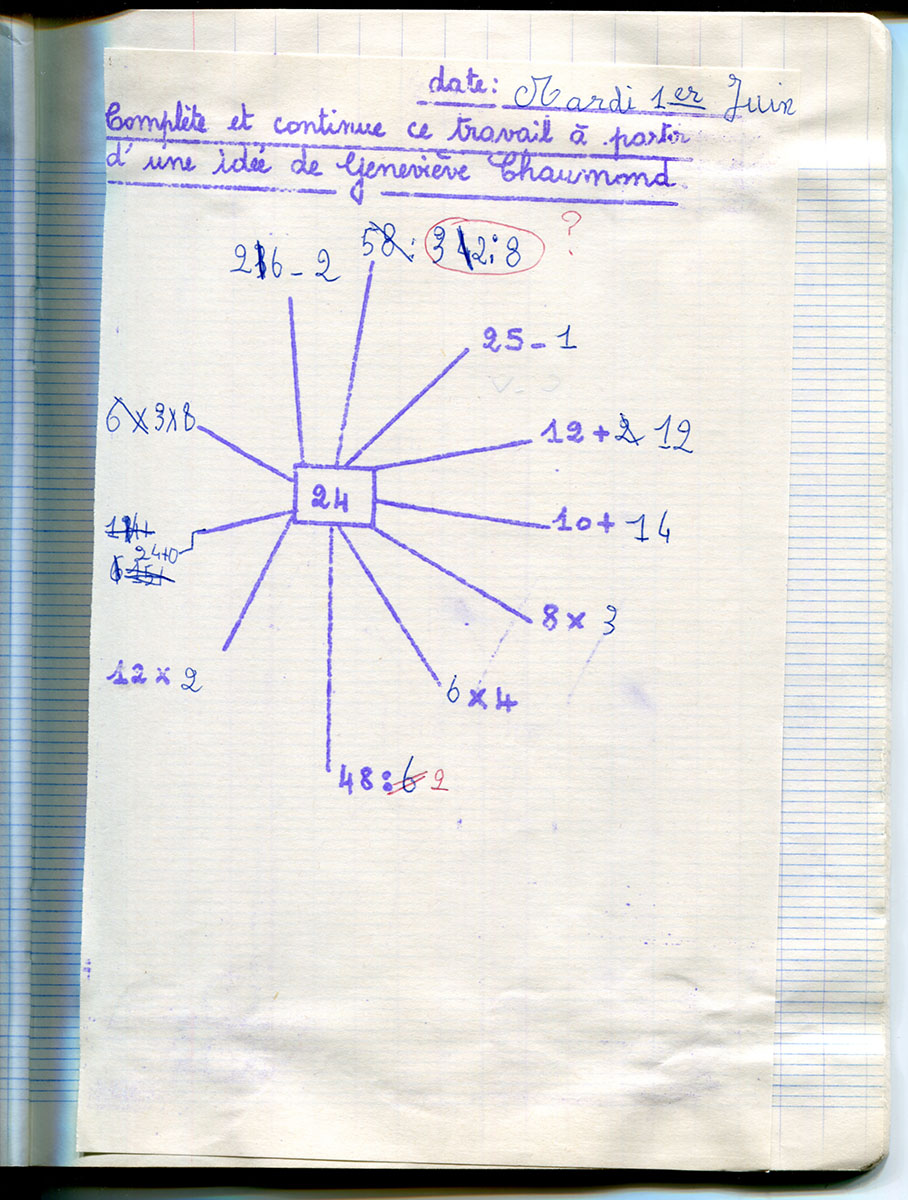 date: Mardi 1er Juin
Complète et continue ce travail à partir
d'une idée de Geneviève Chaumond.
26 - 2
58 : 3 2 : 8 ?
25 - 1
6 x 3 x 8
12 + 2 12
24
10 + 14
14+
24+0
15+
8 x 3
12 x 2
6 x 4
48 : 6 2